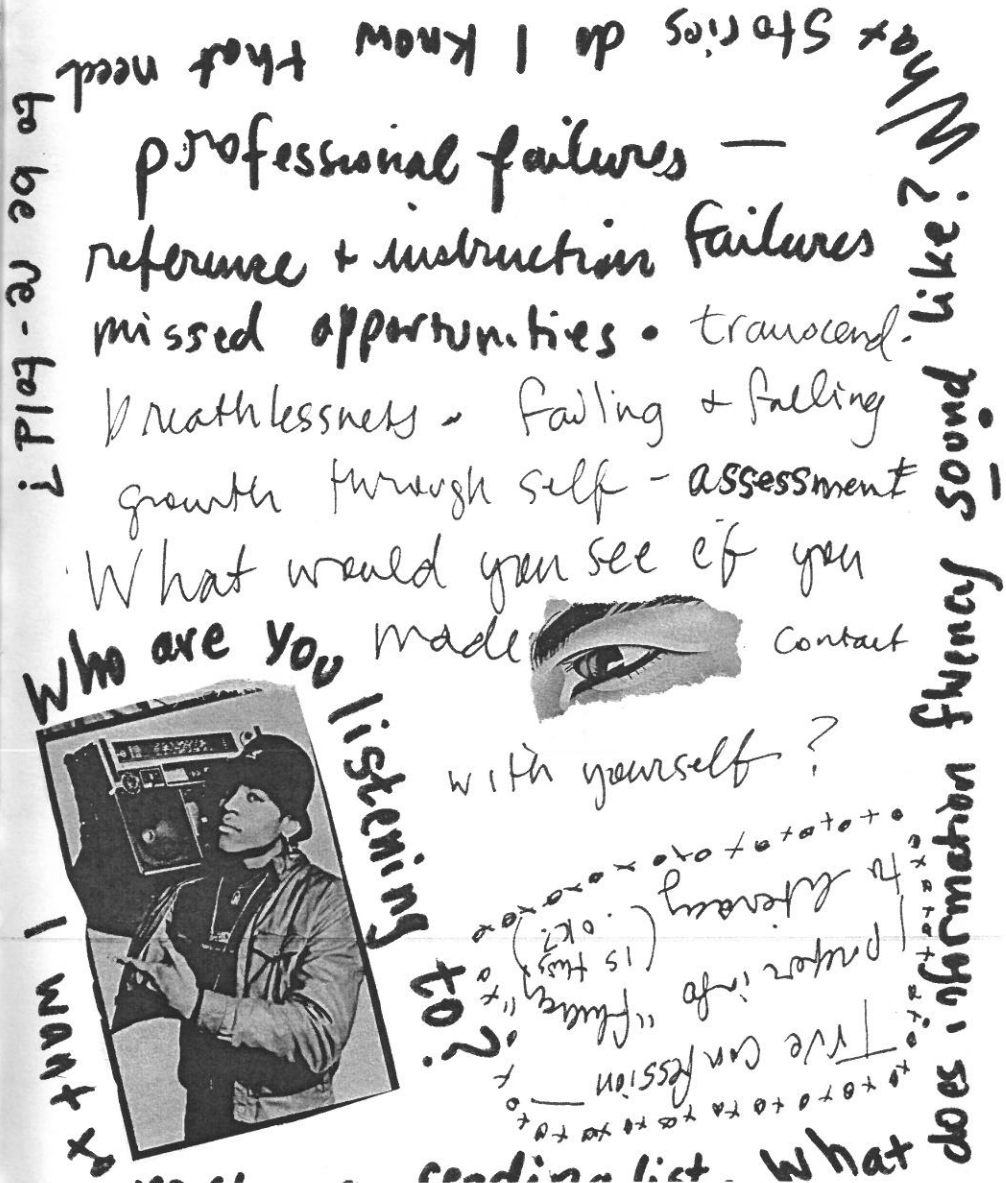 What Stories do I know that need
to be re-told?
professional failures —
reference + instruction failures
missed opportunities • transcend.
breathlessness. failing & falling
growth through self-assessment
What would you see if you
made contact
with yourself?
Who are you listening to?
True confession —
I prefer info "fluency"
to literacy (is this ok?)
I want to
reading list. What
does information fluency sound like?